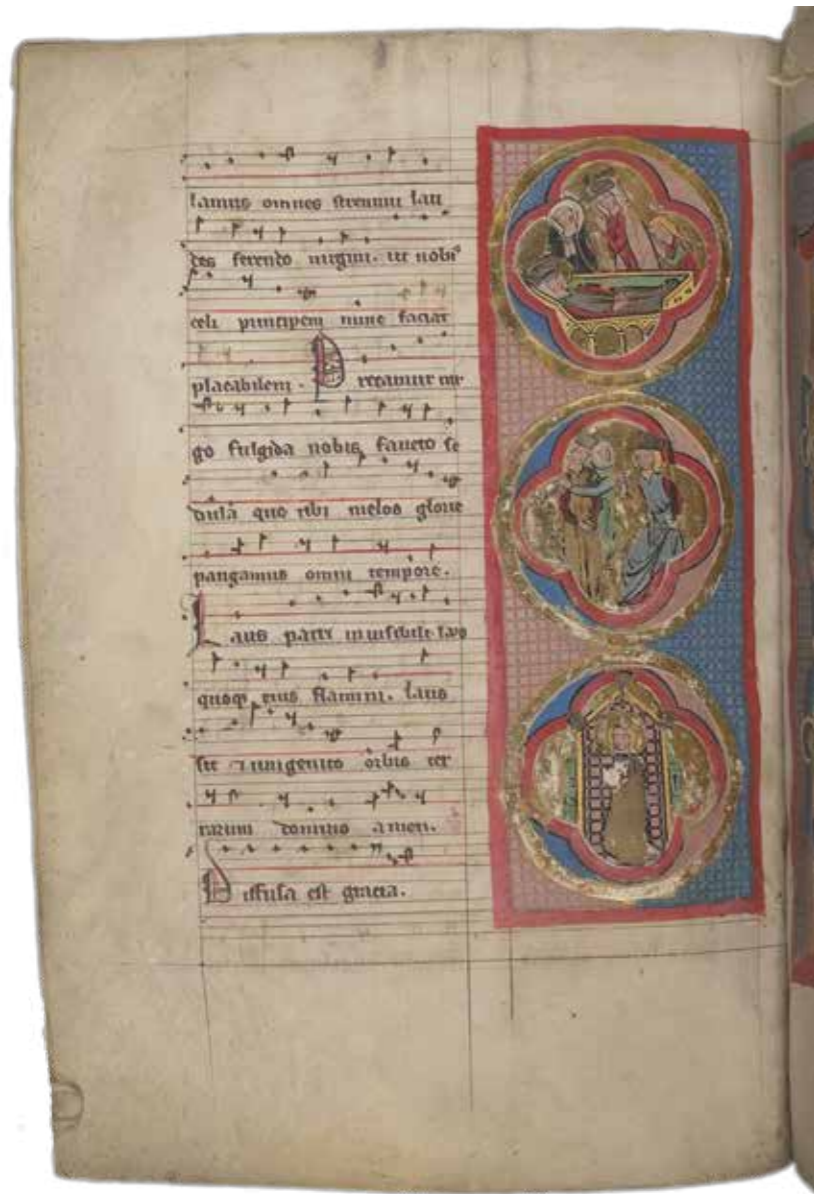 lamus omnes strenuui lau
des ferendo uirgini. ut nobis
celi principem nunc faciat
placabilem. Precamur uir
go fulgida nobis faueto se
dula quo tibi melos glorie
pangamus omni tempore.
Laus patri inuisibili laus
quoque eius flamini. laus
sit unigenito orbis ter
rarum domino amen.
Diffusa est gracia.